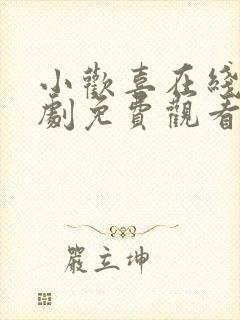 小歡喜在綫
劇免費觀看
嚴立坤